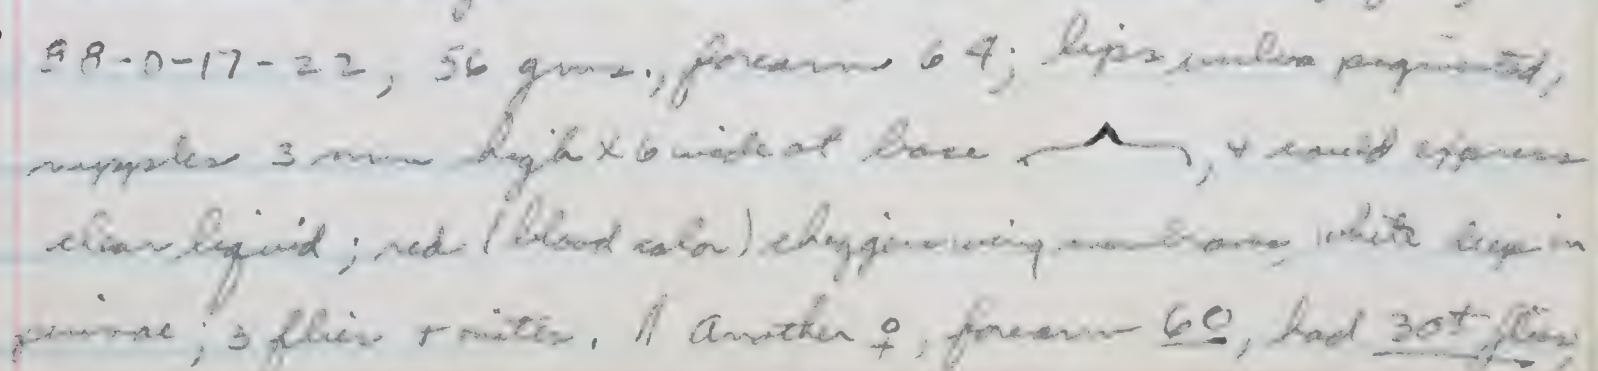 98-0-17-22, 56 gms., forearm 64; lips pigmented,
nipples 3 mm high x 6 wide at base , + could express
clear liquid; red (blood color) chiggers in wing membranes, white in
; 3 flies + mites. // Another ♀, forearm 60, had 30+ flies,